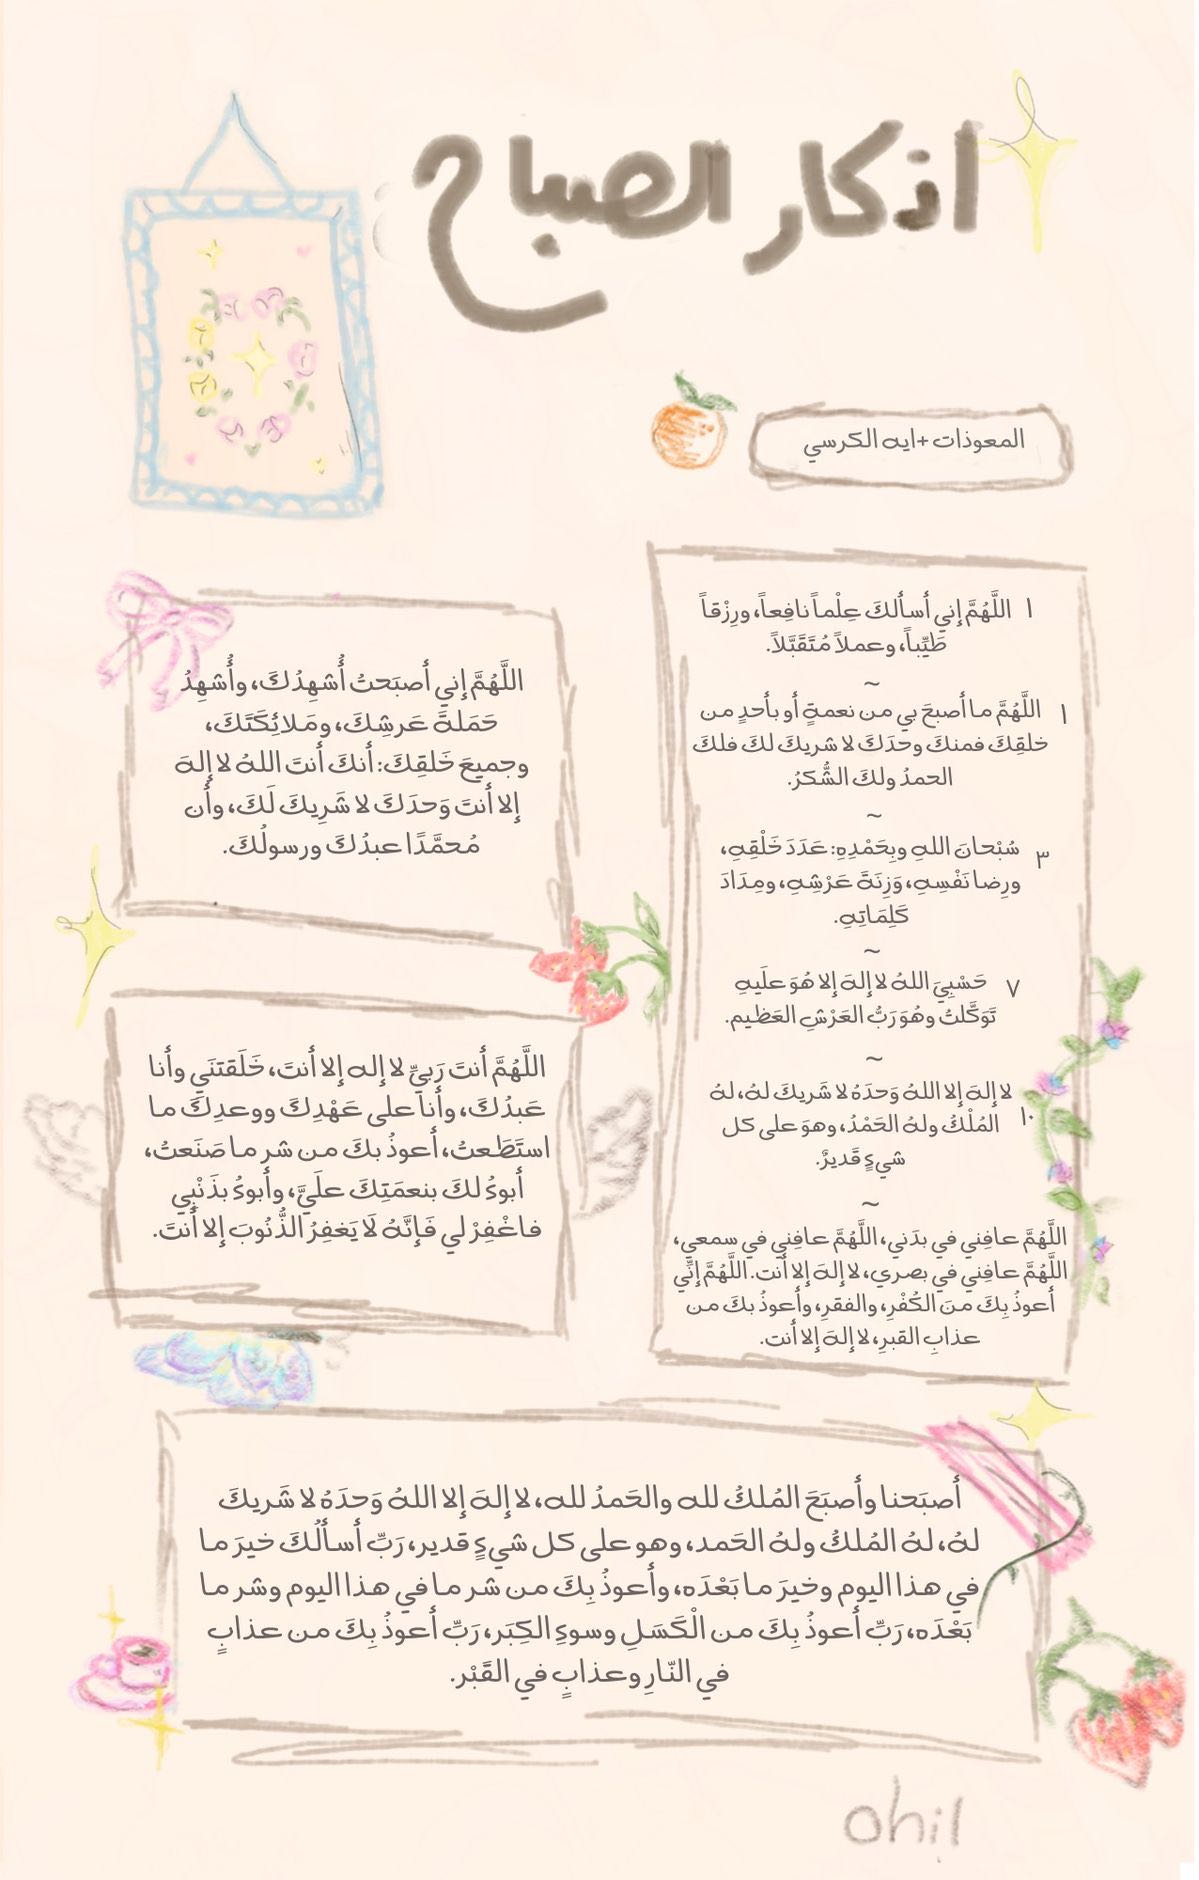 اذكار الصباح
المعوذات +ايه الكرسي
١ اللَّهُمَّ إني أسألكَ عِلْماً نافِعاً، ورِزْقاً
طَيِّباً، وعملاً مُتَقَبَّلاً.
~
١ اللَّهُمَّ ما أصبحَ بي من نعمةٍ أو بأحدٍ من
خلقِكَ فمنكَ وحدَكَ لا شريكَ لكَ فلكَ
الحمدُ ولكَ الشُّكرُ.
~
٣ سُبْحانَ اللهِ وبِحَمْدِهِ: عَدَدَ خَلْقِهِ،
ورِضا نَفْسِهِ، وَزِنَةَ عَرْشِهِ، ومِدَادَ
كَلِمَاتِهِ.
~
٧ حَسْبِيَ اللهُ لا إلهَ إلا هُوَ علَيهِ
تَوَكَّلتُ وهُوَ رَبُّ العَرْشِ العَظيم.
~
لا إلهَ إلا اللهُ وَحدَهُ لا شَريكَ لهُ، لهُ
١٠ المُلْكُ ولهُ الحَمْدُ، وهوَ على كل
شيءٍ قَديرٌ.
~
اللَّهُمَّ عافِني في بدَني، اللَّهُمَّ عافِني في سمعي،
اللَّهُمَّ عافِني في بصري، لا إلهَ إلا أنت. اللَّهُمَّ إنِّي
أعوذُ بِكَ منَ الكُفْرِ، والفقرِ، وأعوذُ بكَ من
عذابِ القبرِ، لا إلهَ إلا أنت.
اللَّهُمَّ إني أصبَحتُ أُشهِدُكَ، وأُشهِدُ
حَمَلةَ عَرشِكَ، ومَلائِكَتَكَ،
وجميعَ خَلقِكَ: أنكَ أنتَ اللهُ لا إلهَ
إلا أنتَ وَحدَكَ لا شَرِيكَ لَكَ، وأن
مُحمَّدًا عبدُكَ ورسولُكَ.
اللَّهُمَّ أنتَ رَبيِّ لا إله إلا أنتَ، خَلَقتنَي وأنا
عَبدُكَ، وأنا على عَهْدِكَ ووعدِكَ ما
استَطَعتُ، أعوذُ بكَ من شر ما صَنَعتُ،
أبوءُ لكَ بنعمَتِكَ علَيَّ، وأبوءُ بذَنْبِي
فاغْفِرْ لي فَإنَّهُ لَا يَغفِرُ الذُّنُوبَ إلا أنتَ.
أصبَحنا وأصبَحَ المُلكُ لله والحَمدُ لله، لا إلهَ إلا اللهُ وَحدَهُ لا شَريكَ
لهُ، لهُ المُلكُ ولهُ الحَمد، وهو على كل شيءٍ قدير، رَبِّ أسألُكَ خيرَ ما
في هذا اليوم وخيرَ ما بَعْدَه، وأعوذُ بِكَ من شر ما في هذا اليوم وشر ما
بَعْدَه، رَبِّ أعوذُ بِكَ من الْكَسَلِ وسوءِ الكِبَر، رَبِّ أعوذُ بِكَ من عذابٍ
في النّارِ وعذابٍ في القَبْر.
ohil